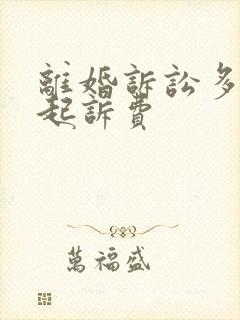 離婚訴訟多
起訴費
萬福盛